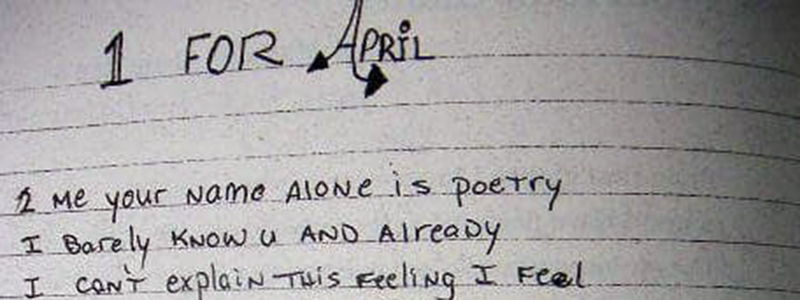 1 FOR APRiL
2 Me your Name AloNe is poeTry
I Barely KNOW u AND AlreaDy
I CAN'T explaiN THis FeeliNg I Feel